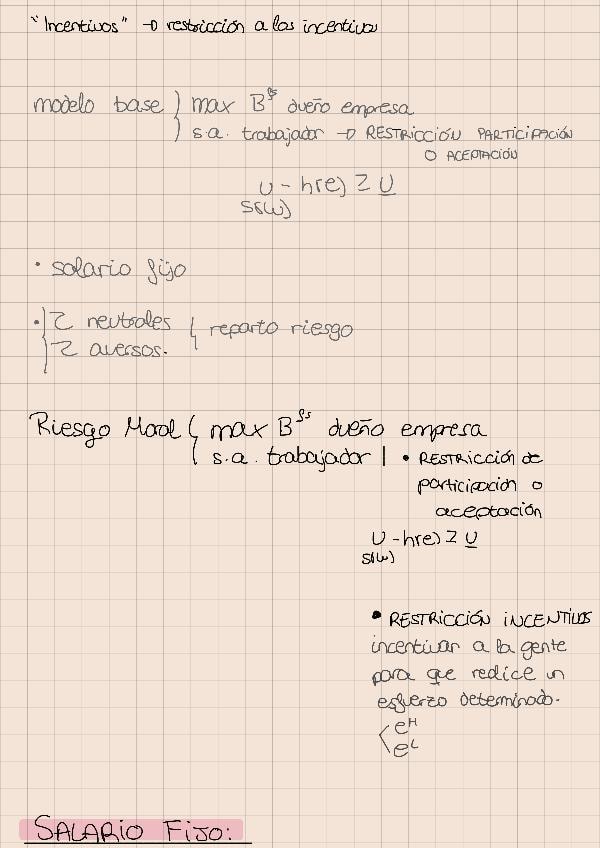 "Incentivos" → restricción a los incentivos
modelo base } max Bºs dueño empresa
s.a. trabajador → RESTRICCIÓN PARTICIPACIÓN
O ACEPTACIÓN
U - h(e) ≥ U
S(w)
• salario fijo
• 2 neutrales { reparto riesgo
2 aversos.
Riesgo Moral { max Bºs dueño empresa
s.a. trabajador | • RESTRICCIÓN de
participación o
aceptación
U - h(e) ≥ U
S(w)
• RESTRICCIÓN INCENTIVOS
incentivar a la gente
para que redice un
esfuerzo determinado.
< eᴴ
eᴸ
SALARIO FIJO: